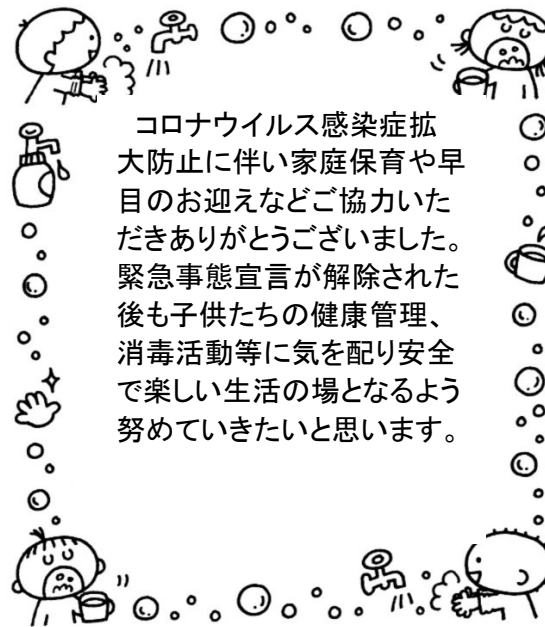 コロナウイルス感染症拡
大防止に伴い家庭保育や早
目のお迎えなどご協力いた
だきありがとうございました。
緊急事態宣言が解除された
後も子供たちの健康管理、
消毒活動等に気を配り安全
で楽しい生活の場となるよう
努めていきたいと思います。